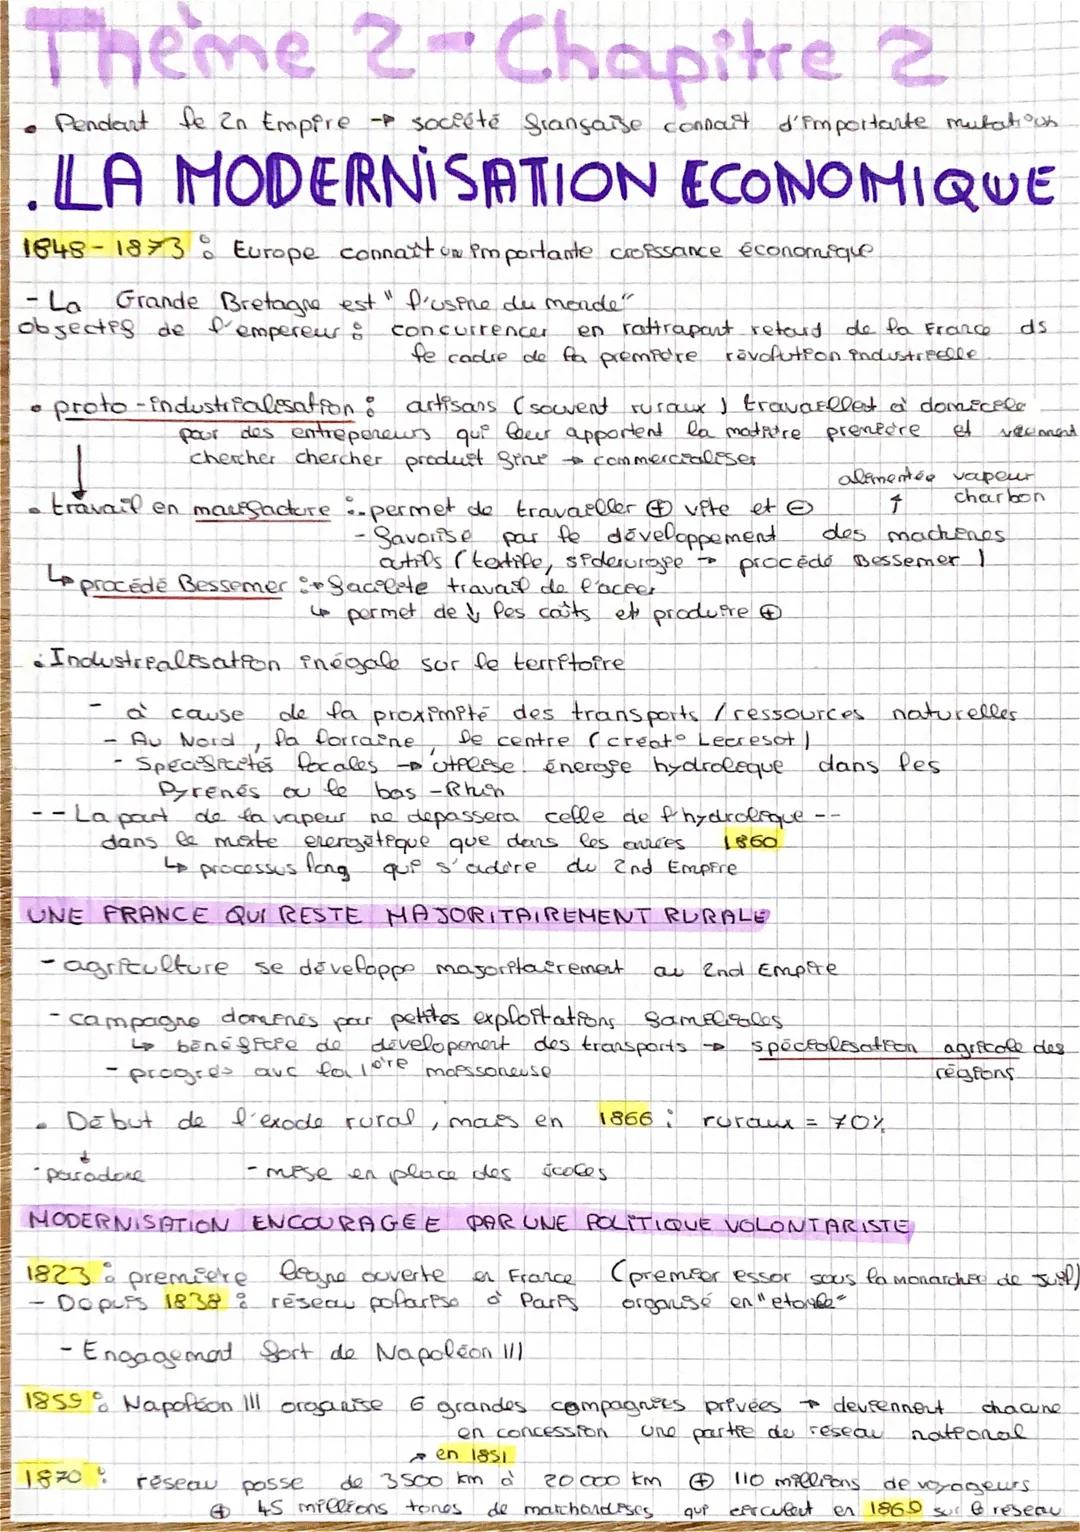 Thème 2 - Chapitre 2
• Pendant le 2n Empire → société française connait d'importante mutations
. LA MODERNISATION ECONOMIQUE
1848-1873 : Europe connaît un importante croissance économique
- La Grande Bretagne est "l'usine du monde"
objectifs de l'empereur : concurrencer en rattrapant retard de la France ds
le cadre de la première révolution industrielle
• proto-industrialisation : artisans (souvent ruraux) travaillent à domicile
pour des entrepeneurs qui leur apportent la matière première et viennent
chercher chercher produit fini → commercialiser
alimentée vapeur
↑ charbon
• travail en manufacture : - permet de travailler ⊕ vite et ⊖
- favorise par le développement des machines
outils (textile, sidérurgie → procédé Bessemer)
↳ procédé Bessemer : facilite travail de l'acier
↳ permet de ↓ les coûts et produire ⊕
• Industrialisation inégale sur le territoire
- à cause de la proximité des transports / ressources naturelles
- Au Nord, la lorraine, le centre (creat° Lecresot)
- Spécificités locales → utilise énergie hydrolique dans les
Pyrenés ou le bas-Rhin
-- La part de la vapeur ne dépassera celle de l'hydrolique --
dans le mixte énergétique que dans les années 1860
↳ processus long qui s'adère du 2nd Empire
UNE FRANCE QUI RESTE MAJORITAIREMENT RURALE
- agriculture se développe majoritairement au 2nd Empire
- campagne dominés par petites exploitations familiales
↳ bénéficie de dévelopement des transports → spécialisation agricole des
régions
- progrès avc la 1ère moissoneuse
• Début de l'exode rural, mais en 1866 : ruraux = 70%
↓
• paradoxe - mise en place des écoles
MODERNISATION ENCOURAGÉE PAR UNE POLITIQUE VOLONTARISTE
1823 : première ligne ouverte en France (premier essor sous la monarchie de Juil)
- Depuis 1838 : réseau polarisé à Paris organisé en "etoile"
- Engagement fort de Napoléon III
1859 : Napoléon III organise 6 grandes compagnies privées → deviennent chacune
en concession une partie de réseau national
↗ en 1851
1870 : réseau passe de 3500 km à 20 000 km ⊕ 110 millions de voyageurs
⊕ 45 millions tones de marchandises qui circulent en 1860 sur le réseau